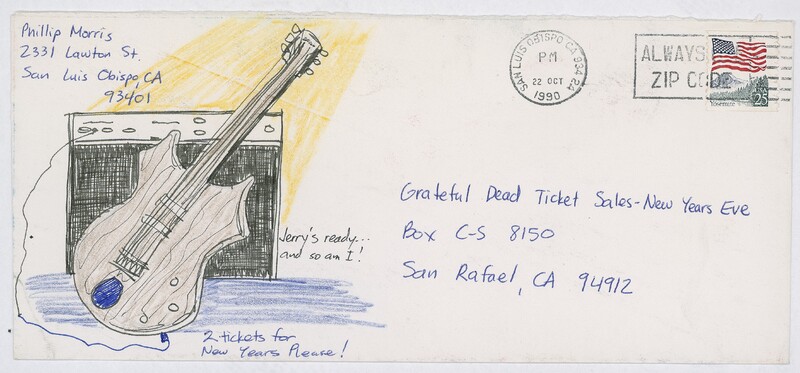 Phillip Morris
2331 Lawton St.
San Luis Obispo, CA
93401
SAN LUIS OBISPO CA 934 24
PM
22 OCT
1990
ALWAYS
ZIP CODE
25
Jerry's ready...
and so am I!
Grateful Dead Ticket Sales-New Years Eve
Box C-S 8150
San Rafael, CA 94912
2 tickets for
New Years Please!